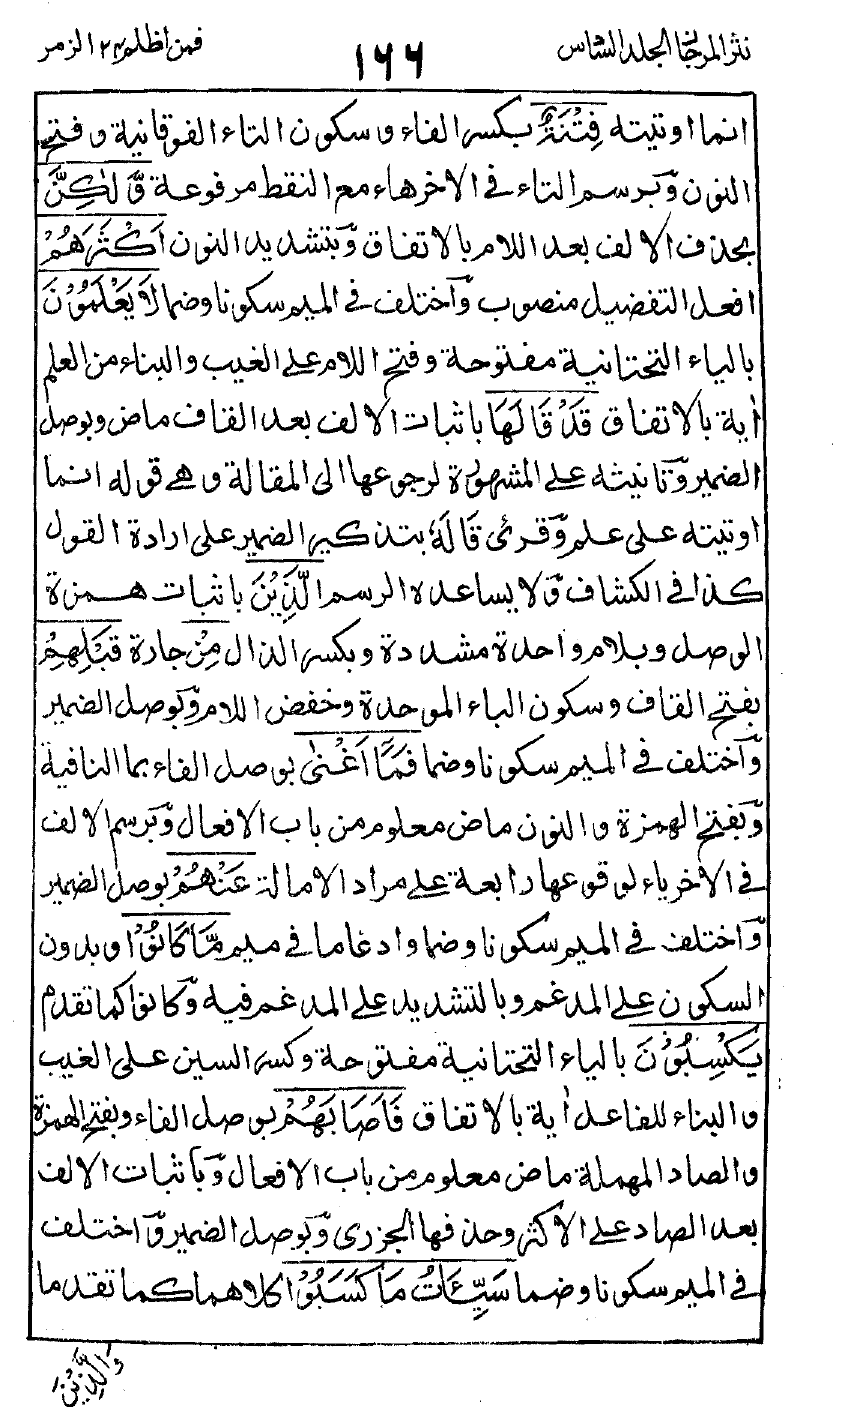 نثر المرجان الجلد السادس
١٦٦
فمن اظلم ٢٤ الزمر
انما اوتيته فِتْنَةٌ بكسر الفاء وسكون التاء الفوقانية وفتح
النون وَبرسم التاء فى الاخرهاء مع النقط مرفوعة وَّلٰكِنَّ
بحذف الالف بعد اللام بالاتفاق وَبتشديد النون اَكْثَرَهُمْ
افعل التفضيل منصوب وَاختلف فى الميم سكونا وضما لَا يَعْلَمُوْنَ
بالياء التحتانية مفتوحة وفتح اللام على الغيب والبناء من العلم
اٰية بالاتفاق قَدْ قَالَهَا باثبات الالف بعد القاف ماض وبوصل
الضمير وَتانيثه على المشهورة لرجوعها الى المقالة وهى قوله انما
اوتيته على علم وَقرئ قَالَهُ بتذكير الضمير على ارادة القول
كذا فى الكشاف وَلا يساعده الرسم الَّذِيْنَ باثبات همزة
الوصل وبلام واحدة مشددة وبكسر الذال مِنْ جارة قَبْلِهِمْ
بفتح القاف وسكون الباء الموحدة وخفض اللام وَبوصل الضمير
وَاختلف فى الميم سكونا وضما فَمَا اَغْنٰى بوصل الفاء بما النافية
وَبفتح الهمزة والنون ماض معلوم من باب الافعال وَبرسم الالف
فى الاخر ياء لوقوعها رابعة على مراد الامالة عَنْهُمْ بوصل الضمير
وَاختلف فى الميم سكونا وضما وادغاما فى ميم مَّا كَانُوْا وبدون
السكون على المدغم وبالتشديد على المدغم فيه وَكانوا كما تقدم
يَكْسِبُوْنَ بالياء التحتانية مفتوحة وكسر السين على الغيب
والبناء للفاعل اٰية بالاتفاق فَاَصَابَهُمْ بوصل الفاء وبفتح الهمزة
والصاد المهملة ماض معلوم من باب الافعال وَباثبات الالف
بعد الصاد على الاكثر وحذفها الجزرى وَبوصل الضمير وَاختلف
فى الميم سكونا وضما سَيِّئَاتُ مَا كَسَبُوْا كلاهما كما تقدما
وَالَّذِيْنَ